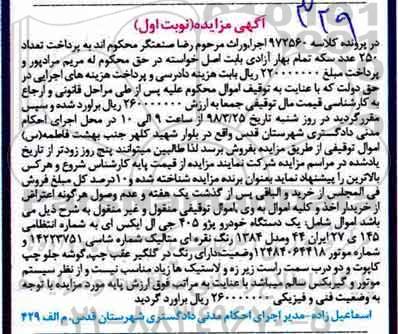 ۳۲۹
آگهی مزایده(نوبت اول)
در پرونده کلاسه ۹۷۲۵۶۰ اجراوراث مرحوم رضا صنعتگر محکوم اند به پرداخت تعداد
۲۵۰ عدد سکه تمام بهار آزادی بابت اصل خواسته در حق محکوم له مریم مرادپور و
پرداخت مبلغ ۲۲۰۰۰۰۰۰ ریال بابت هزینه دادرسی و پرداخت هزینه های اجرایی در
حق دولت که با عنایت به توقیف اموال محکوم علیه پس از طی مراحل قانونی و ارجاع
به کارشناسی قیمت مال توقیفی جمعا به ارزش ۲۶۰۰۰۰۰۰۰ ریال براورد شده و سپس
مقررگردید در روز شنبه تاریخ ۹۸/۳/۲۵ از ساعت ۹ الی ۱۰ در محل اجرای احکام
مدنی دادگستری شهرستان قدس واقع در بلوار شهید کلهر جنب بهشت فاطمه(س)
اموال توقیفی از طریق مزایده بفروش برسد لذا طالبین میتوانند پنج روز زودتر از تاریخ
یادشده در مراسم مزایده شرکت نمایند مزایده از قیمت پایه کارشناس شروع و هرکس
بالاترین را پیشنهاد نماید بعنوان برنده مزایده شناخته شده و ۱۰درصد کل مبلغ فروش
فی المجلس از خریدار و الباقی پس از گذشت یک هفته و عدم وصول هرگونه اعتراض
از خریدار اخذ و کلیه اموال به وی .اموال توقیفی منقول و غیر منقول به شرح ذیل می
باشد اموال شامل: یک دستگاه خودرو پژو ۴۰۵ جی ال ایکس ای به شماره انتظامی
۱۴۵ ی ۲۷ ایران ۴۴ ومدل ۱۳۸۴ رنگ نقره ای متالیک شماره شاسی ۱۴۲۲۳۷۵۱ و
شماره موتور ۱۲۴۸۴۰۶۴۴۱۸وضعیت:دارای رنگ در گلگیر عقب چپ،گوشه جلو چپ
کاپوت و دو درب سمت راست زیر زه و لاستیک ها زیاد مناسب نیست و از نظر سیستم
موتور و گیربکس سالم میباشد با عنایت به مراتب فوق ارزش پایه مورد مزایده با توجه
به وضعیت فنی و فیزیکی ۲۶۰۰۰۰۰۰۰ ریال براورد گردید
اسماعیل زاده-مدیر اجرای احکام مدنی دادگستری شهرستان قدس- م الف ۴۲۹